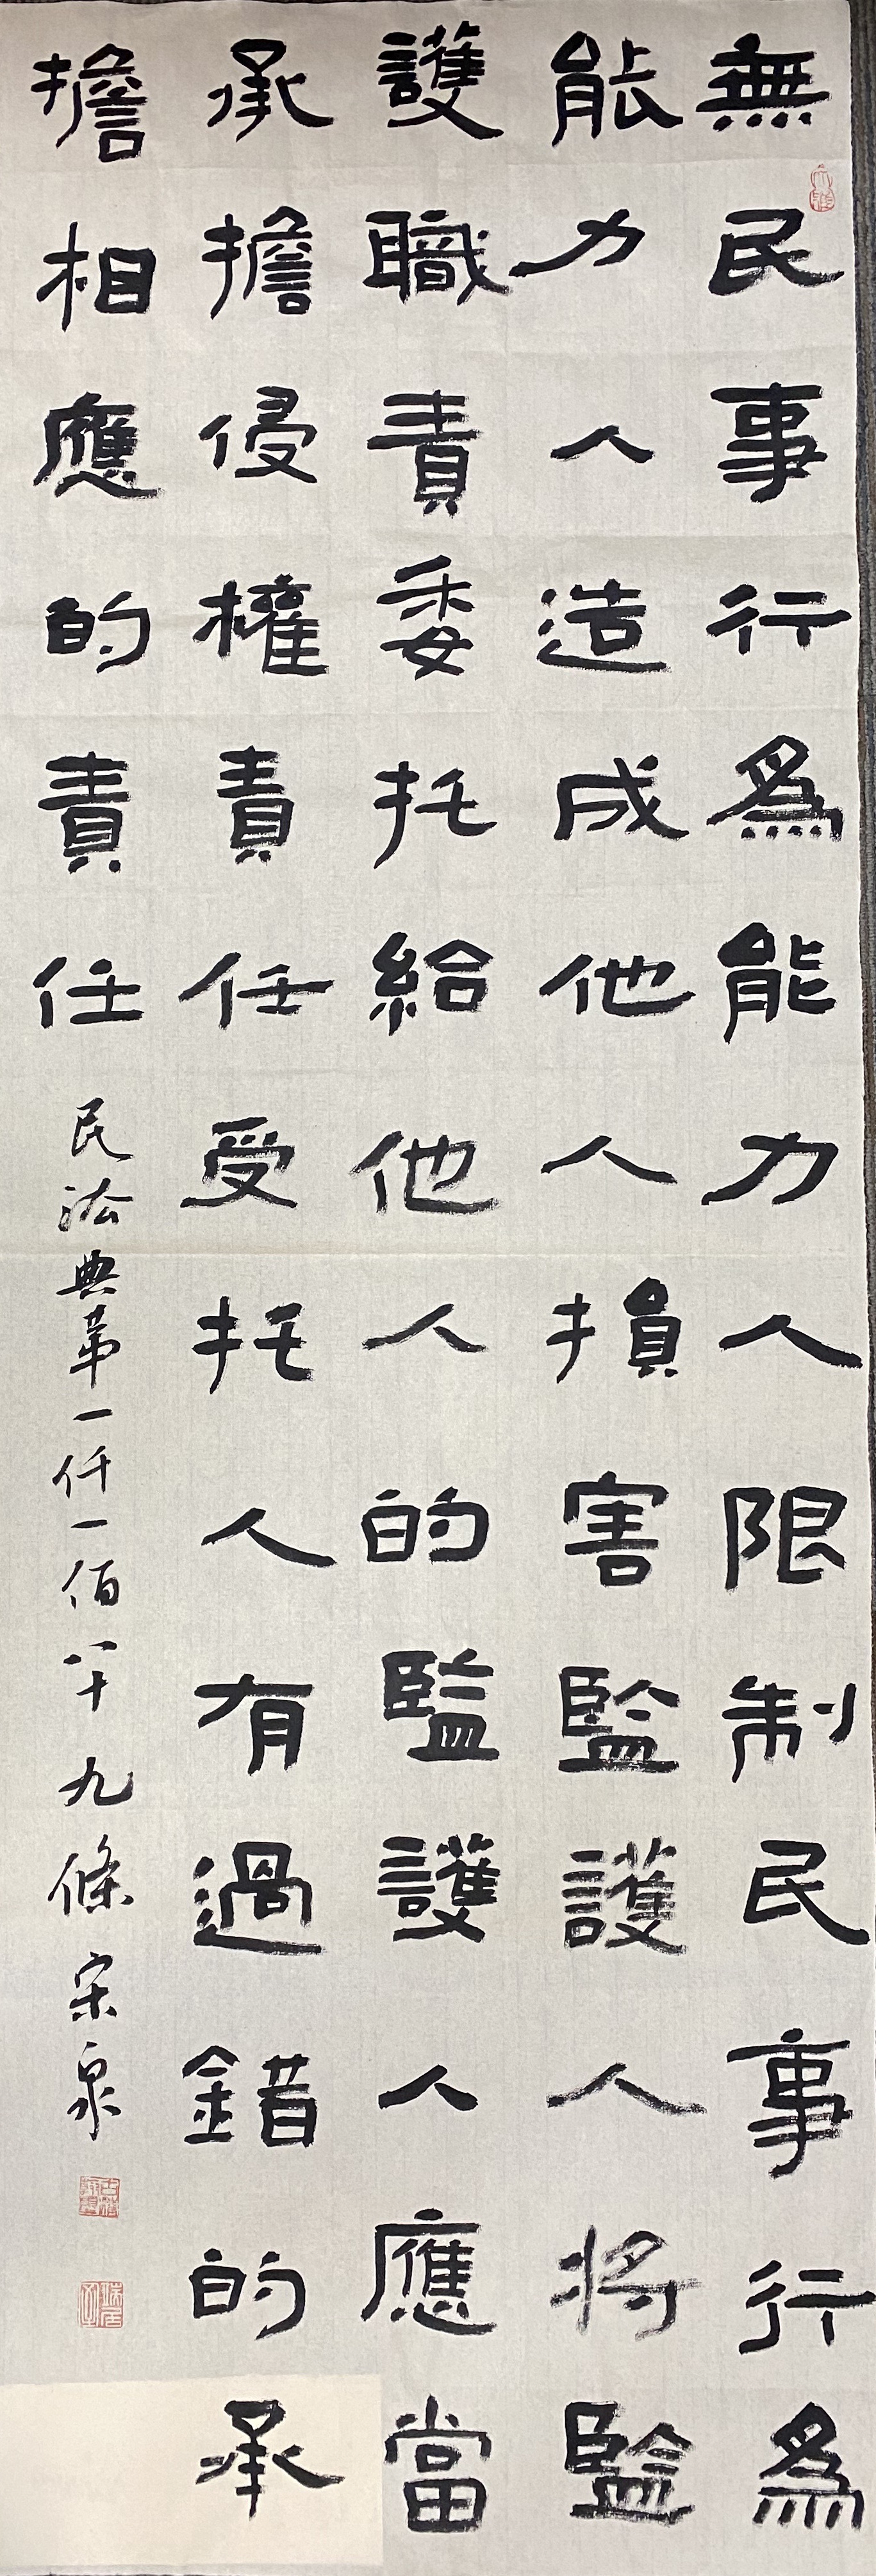 無民事行爲能力人限制民事行爲
能力人造成他人損害監護人將監
護職責委托給他人的監護人應當
承擔侵權責任受托人有過錯的承
擔相應的責任
民法典第一仟一佰八十九條 宋泉